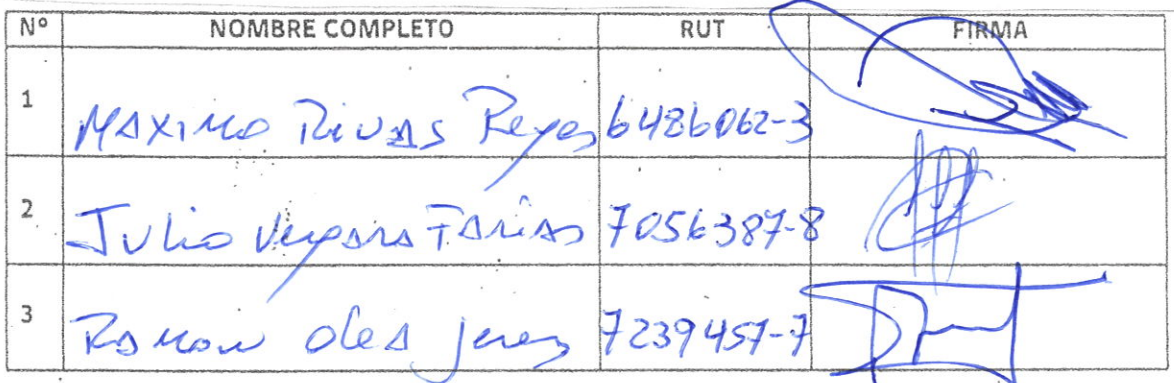 Nº NOMBRE COMPLETO RUT FIRMA
1 MAXIMO RIVAS Reyes 6486062-3
2 JULIO Vergara FARIAS 7056387-8
3 RAMON Olea Jerez 7239457-7